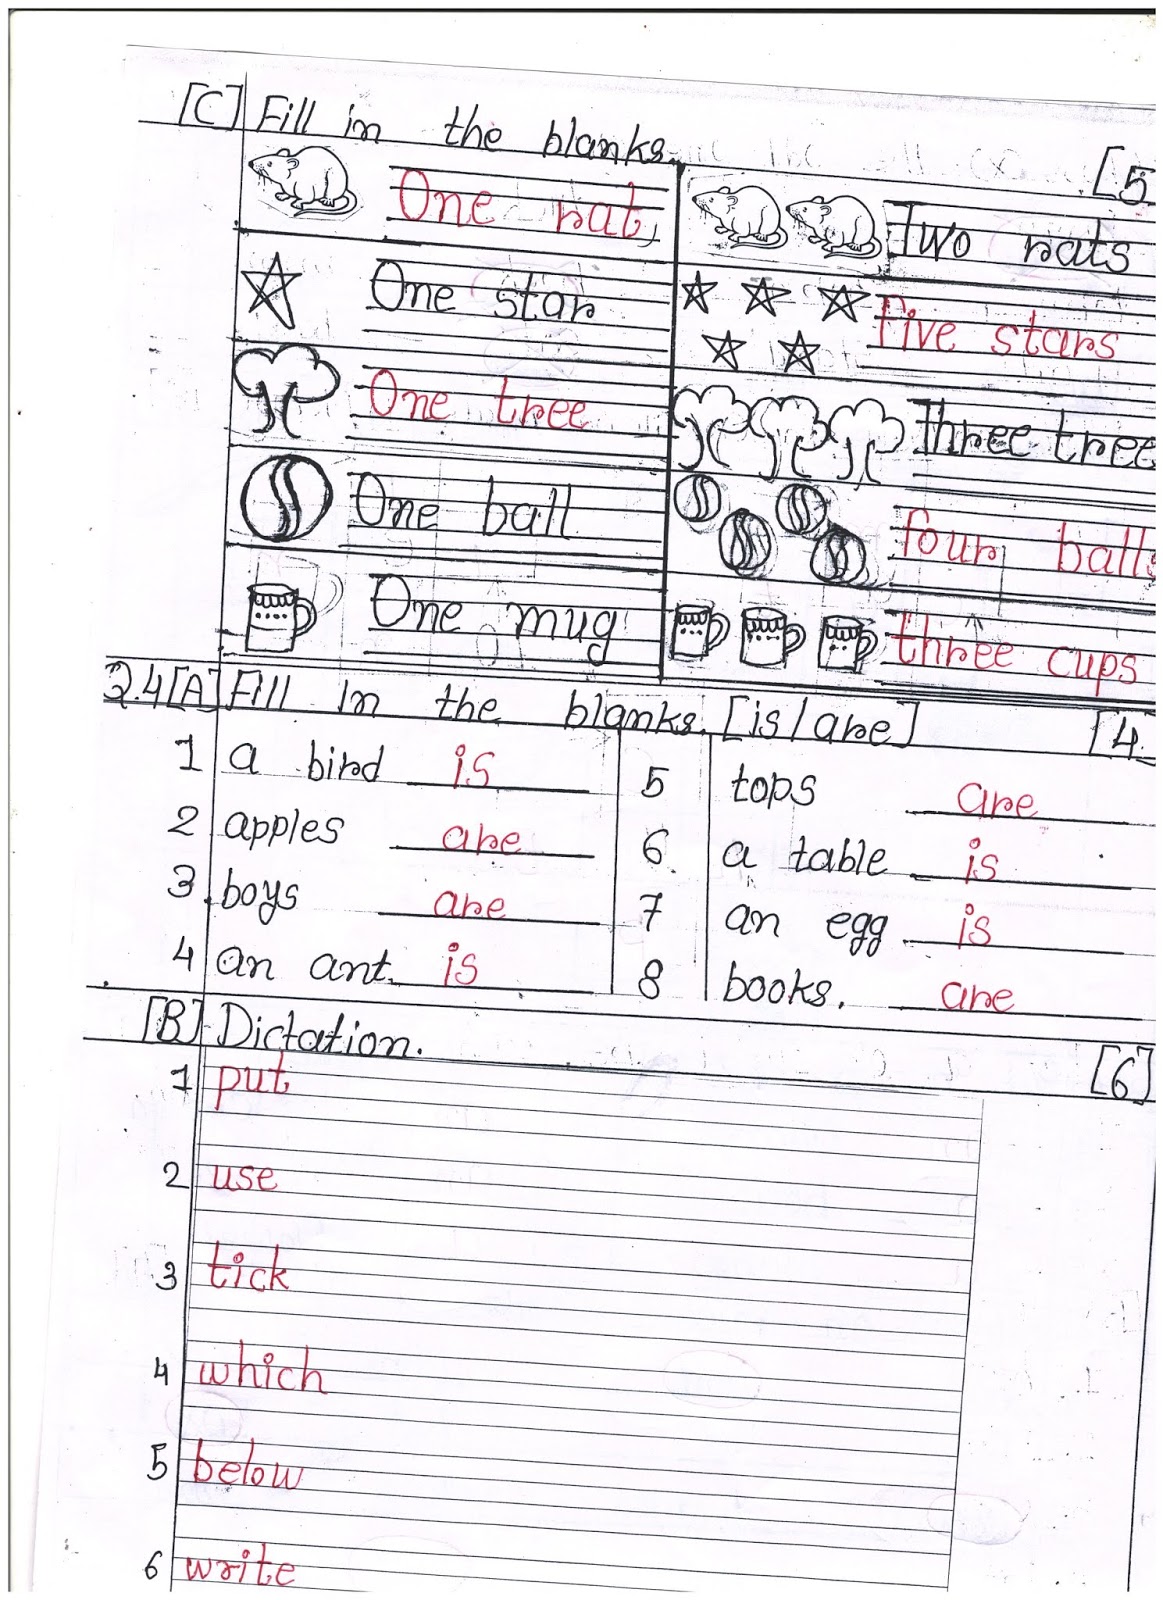 [C] Fill in the blanks. [5
One rat Two rats
One star five stars
One tree three tree
One ball four balls
One mug three cups
2.4 [A] Fill in the blanks. [is/are] [4
1 a bird is 5 tops are
2 apples are 6 a table is
3 boys are 7 an egg is
4 an ant is 8 books. are
[B] Dictation. [6]
1 put
2 use
3 tick
4 which
5 below
6 write